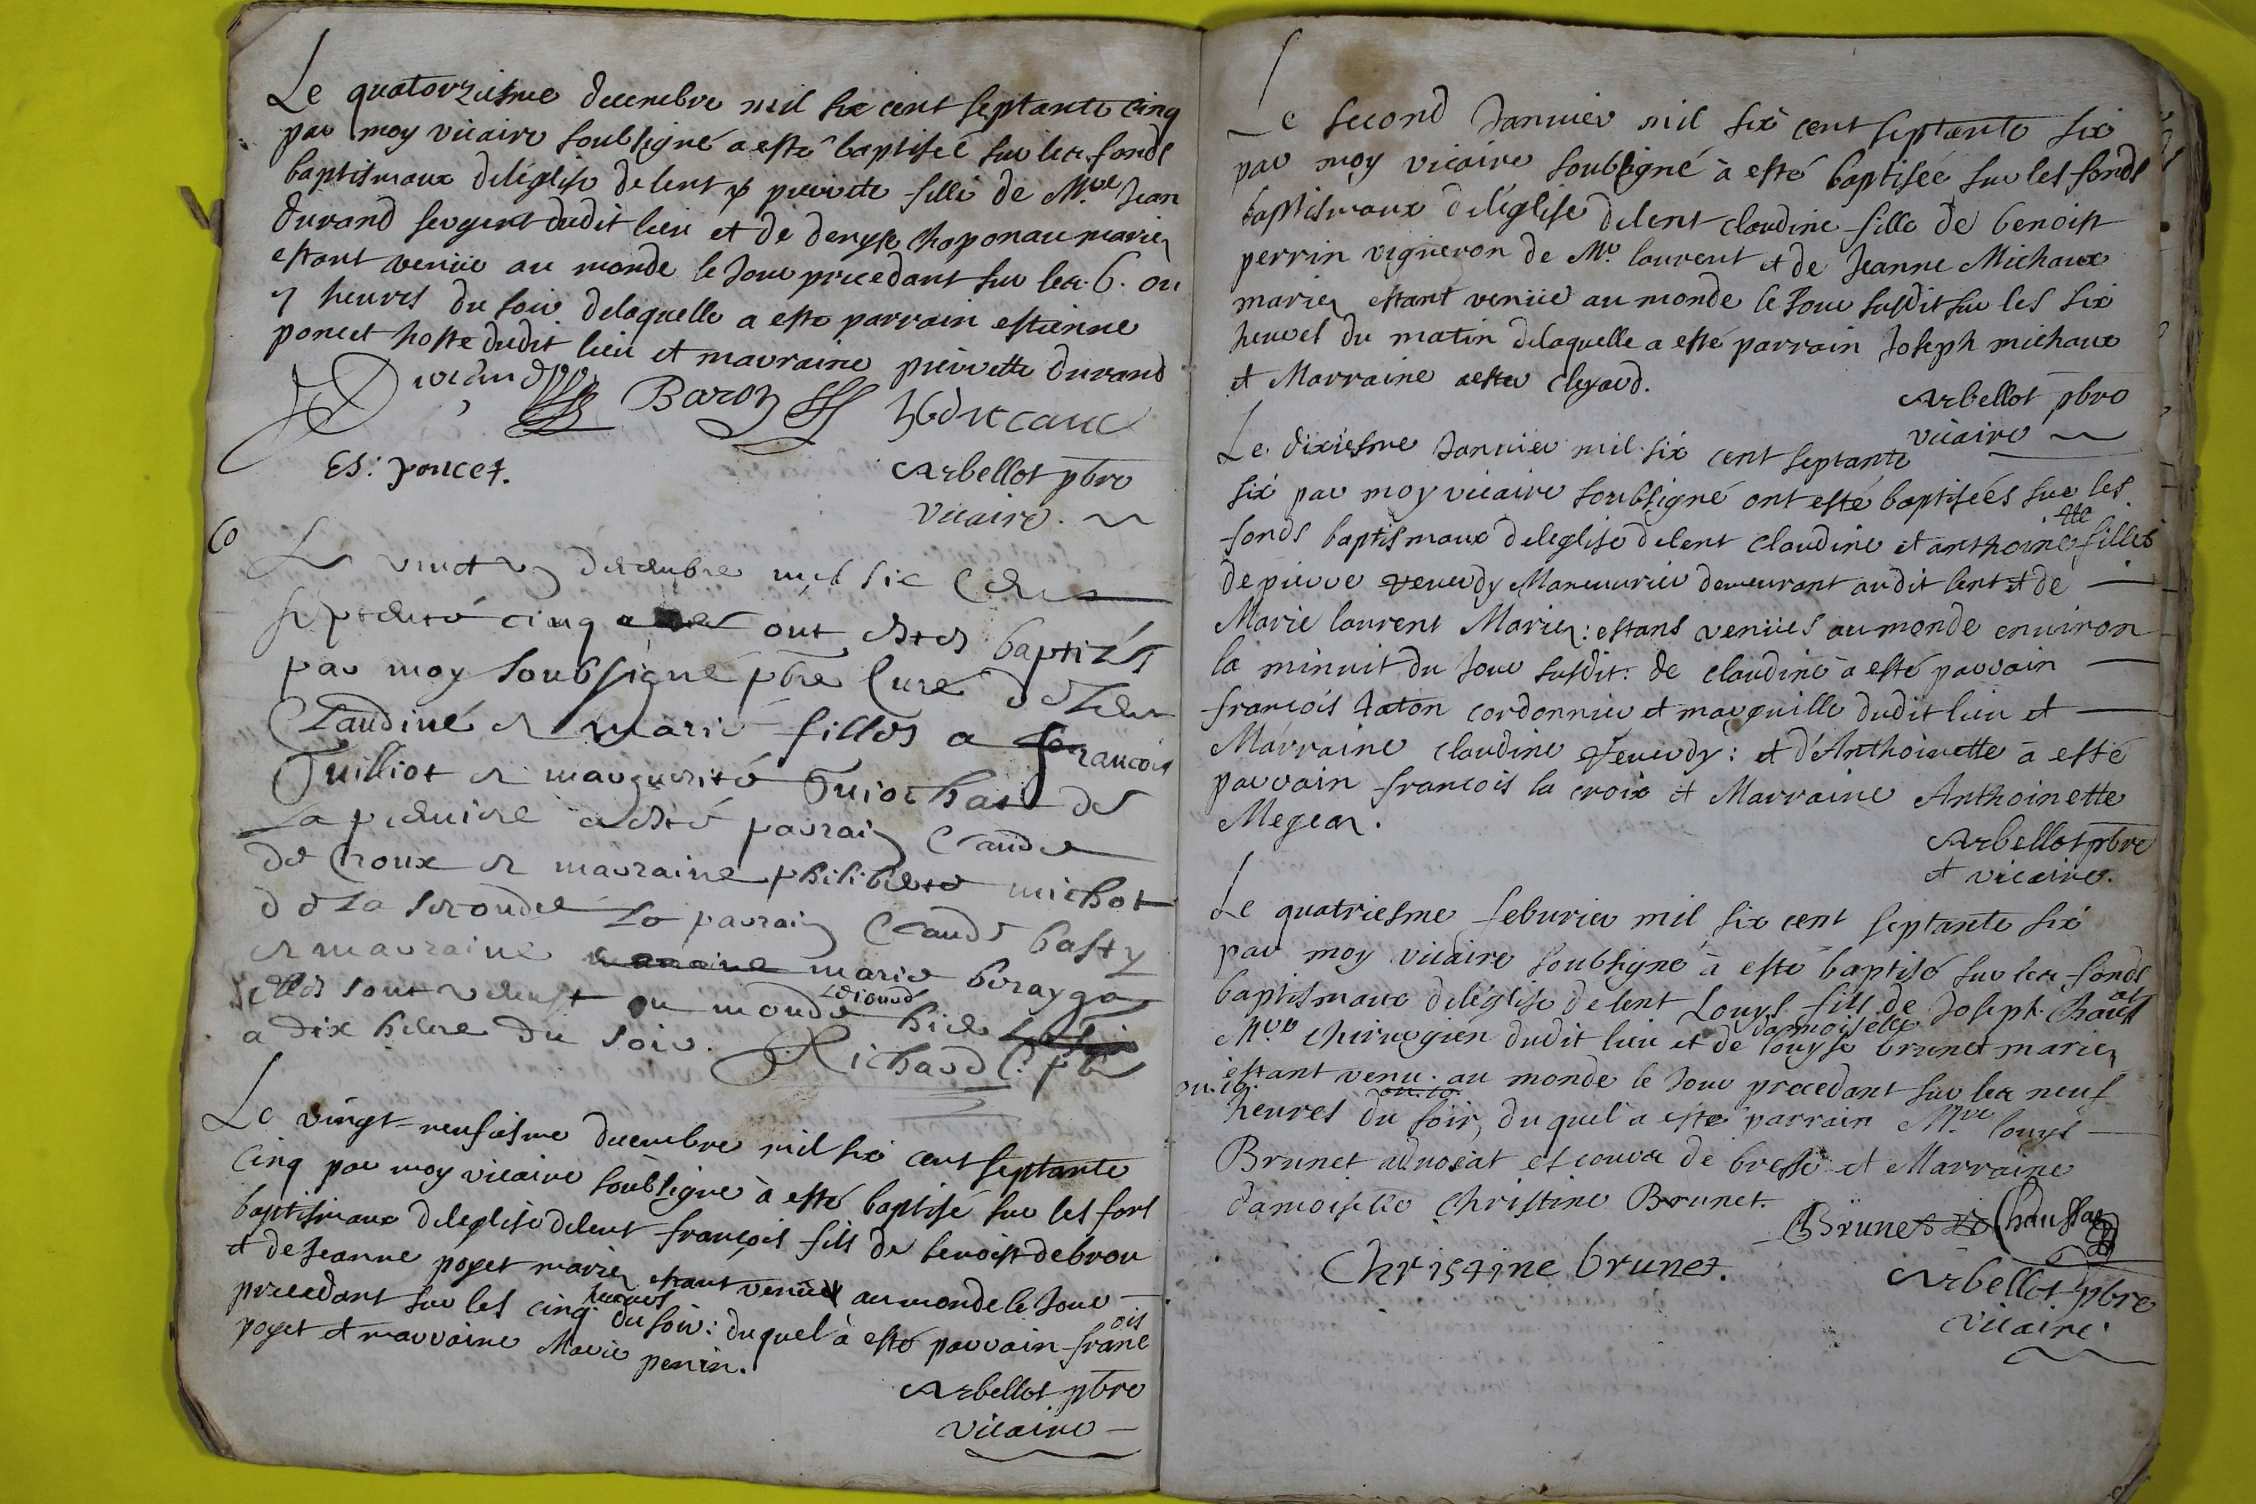 Le quatorziesme decembre mil six cent septante cinq
par moy vicaire soubsigné a esté baptiseé sur les fonds
baptismaux deléglise delent pierrette fille de Mre Jean
durand sergent dudit lieu et de denyse chaponau mariez
estant venüe au monde le Jour precedant sur les 6. ou
7 heures du soir delaquelle a esté parrain estienne
poncet hoste dudit lieu et marraine pierrette durand
Durand Baron
Es: poncet. Arbellot pbre
vicaire.
Le vinct un decembre mil six cens
septente cinq ont estes baptizés
par moy soubsigné pbre Curé de Lent
Claudine et marie filles a francois
Guilliot et marguerite Guiochait de
La premiere a esté parrain Claude
de Croux et marraine philiberte michot
de La seconde Le parrain Claude basty
et marraine marie borayga
elles sont venust au monde hier
a dix heure du soir. Richard C. pbre
Le vingt-neufiesme decembre mil six cent septante
cinq par moy vicaire soubsigné à esté baptisé sur les fons
baptismaux deleglise delent françois fils de benoist debrou
et de Jeanne poget mariez estant venu au monde le Jour
precedant sur les cinq heures du soir: duquel à esté parrain francois
poget et marraine Marie perrin.
Arbellot pbre
vicaire
Le second Januier mil six cent septante six
par moy vicaire soubsigné à esté baptisée sur les fonds
baptismaux deléglise delent claudine fille de benoist
perrin vigneron de Mr. laurent et de Jeanne Michaux
mariez estant venüe au monde le Jour susdit sur les six
heures du matin delaquelle a esté parrain Joseph michaux
et Marraine cleyard.
Arbellot pbre
vicaire
Le dixiesme Januier mil six cent septante
six par moy vicaire soubsigné ont esté baptiseés sur les
fonds baptismaux deleglise delent claudine et anthoinette filles
de pierre reuerdy Maneuurier demeurant audit lent et de
Marie laurent Mariez: estans venües au monde environ
la minuit du Jour susdit: de claudine à esté parrain
françois Taton cordonnier et marguille dudit lieu et
Marraine claudine Reuerdy: et d'Anthoinette à esté
parrain francois la croix et Marraine Anthoinette
Megear.
Arbellot pbre
et vicaire.
Le quatriesme feburier mil six cent septante six
par moy vicaire soubsigné à esté baptisé sur les fonds
baptismaux deléglise delent Louys fils de Joseph
Mre chirurgien dudit lieu et de damoiselle louyse brunet mariez
estant venu au monde le Jour precedant sur les neuf
ou. 10. heures du soir, duquel a esté parrain Mre louys
Brunet aduocat es cours de bresse et Marraine
damoiselle Christine Brunet.
Brunet Chaussat
Christine brunet.
Arbellot pbre
vicaire.